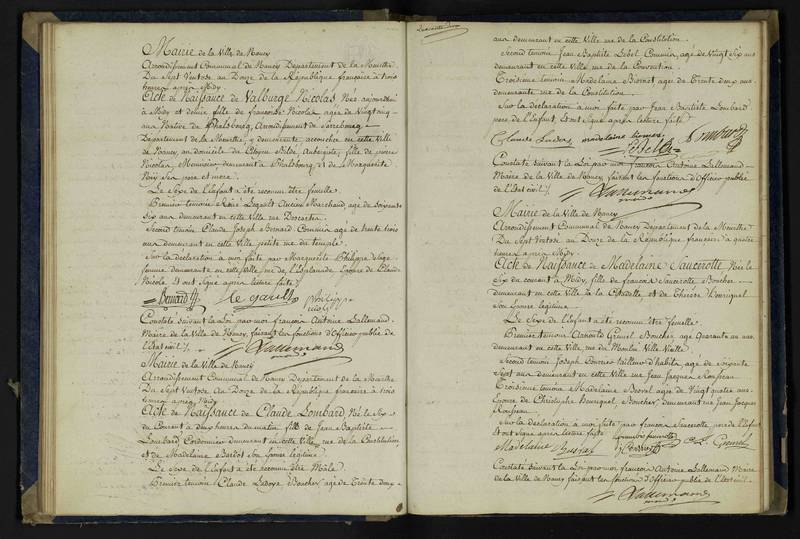 Mairie de la Ville de Nancy
Arrondissement Communal de Nancy Département de la Meurthe
Du Sept Ventose au Douze de la République française à trois
heures après Midy
Acte de Naissance de Valburge Nicolas Née aujourdhui
à Midy et demie fille de françoise Nicolas agée de Vingt cinq
ans Native de Phalsbourg, Arrondissement de Sarrebourg
Département de la Meurthe, y demeurante, accouchée en cette Ville
de Nancy, au domicile du Citoyen Aubergiste, fille de
Nicolas, Menuisier demeurant à Phalsbourg, et de Marguerite
ses pere et mere.
Le Sexe de l'Enfant a été reconnu être femelle.
Premier temoin Ancien Marchand, agé de Soixante
Six ans demeurant en cette Ville rue Descartes.
Second temoin Claude Joseph Bernard Commis agé de trente trois
ans demeurant en cette Ville petite rue du temple.
Sur la déclaration à moi faite par Marguerite Philippe Sage
femme demeurante en cette Ville rue de l'Esplanade, Epouse de Claude
Nicole Et ont Signé après lecture faite
Benard philippe
Constaté suivant la Loi par moi françois Antoine Lallemand
Maire de la Ville de Nancy, faisant les fonctions d'Officier public de
l'Etat civil
Lallemand
Mairie de la Ville de Nancy
Arrondissement Communal de Nancy Département de la Meurthe
Du Sept Ventose au Douze de la République française à trois
heures après Midy
Acte de Naissance de Claude Lombard Né le Six
du Courant à heures du matin fils de Jean Baptiste
Lombard Cordonnier demeurant en cette Ville, rue de la Constitution
et de Madelaine Bardot Son Epouse légitime.
Le Sexe de l'Enfant a été reconnu être Mâle.
Premier temoin Claude Boucher agé de Trente deux
ans demeurant en cette Ville rue de la Constitution.
Second temoin Jean Baptiste Lebel Commis, agé de Vingt Six ans
demeurant en cette Ville rue de la Convention.
Troisieme temoin Madelaine agée de Trente deux ans
demeurante rue de la Constitution.
Sur la déclaration à moi faite par Jean Baptiste Lombard
pere de l'Enfant, Et ont Signé après lecture faite
madelaine
Constaté suivant la Loi par moi françois Antoine Lallemand
Maire de la Ville de Nancy, faisant les fonctions d'Officier public
de l'Etat civil
Lallemand
Mairie de la Ville de Nancy
Arrondissement Communal de Nancy Département de la Meurthe
Du Sept Ventose au Douze de la République française à quatre
heures après Midy
Acte de Naissance de Madelaine Saucerotte Née le
Six du courant à Midy, fille de francois Saucerotte Boucher
demeurant en cette Ville à la Citadelle, et de Thérèse Houriquel
Son Epouse légitime.
Le Sexe de l'Enfant a été reconnu être femelle.
Premier temoin Boucher, agé Quarante un ans
demeurant en cette Ville, rue du Moulin Ville Vieille
Second temoin Joseph tailleur d'habits, agé de Soixante
Sept ans demeurant en cette Ville rue Jean Jacques Rousseau
Troisieme temoin Madelaine agée de Vingt quatre ans
Epouse de Christophe Houriquel, Boucher, demeurant rue Jean Jacques
Rousseau
Sur la déclaration à moi faite par francois Saucerotte, pere de l'Enfant
Et ont Signé après lecture faite
Madelaine
Constaté suivant la Loi par moi françois Antoine Lallemand Maire
de la Ville de Nancy faisant les fonctions d'Officier public de l'Etat civil
Lallemand